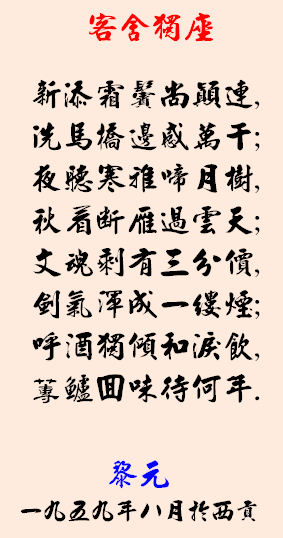 客舍獨座
新添霜鬢尚顛連,
洗馬橋邊感萬千;
夜聽寒雅啼月樹,
秋着断雁過雲天;
文魂剩有三分價,
劍氣渾成一缕煙;
呼酒獨傾和淚飲,
蓴鱸囬味待何年.
黎元
一九五九年八月於西貢